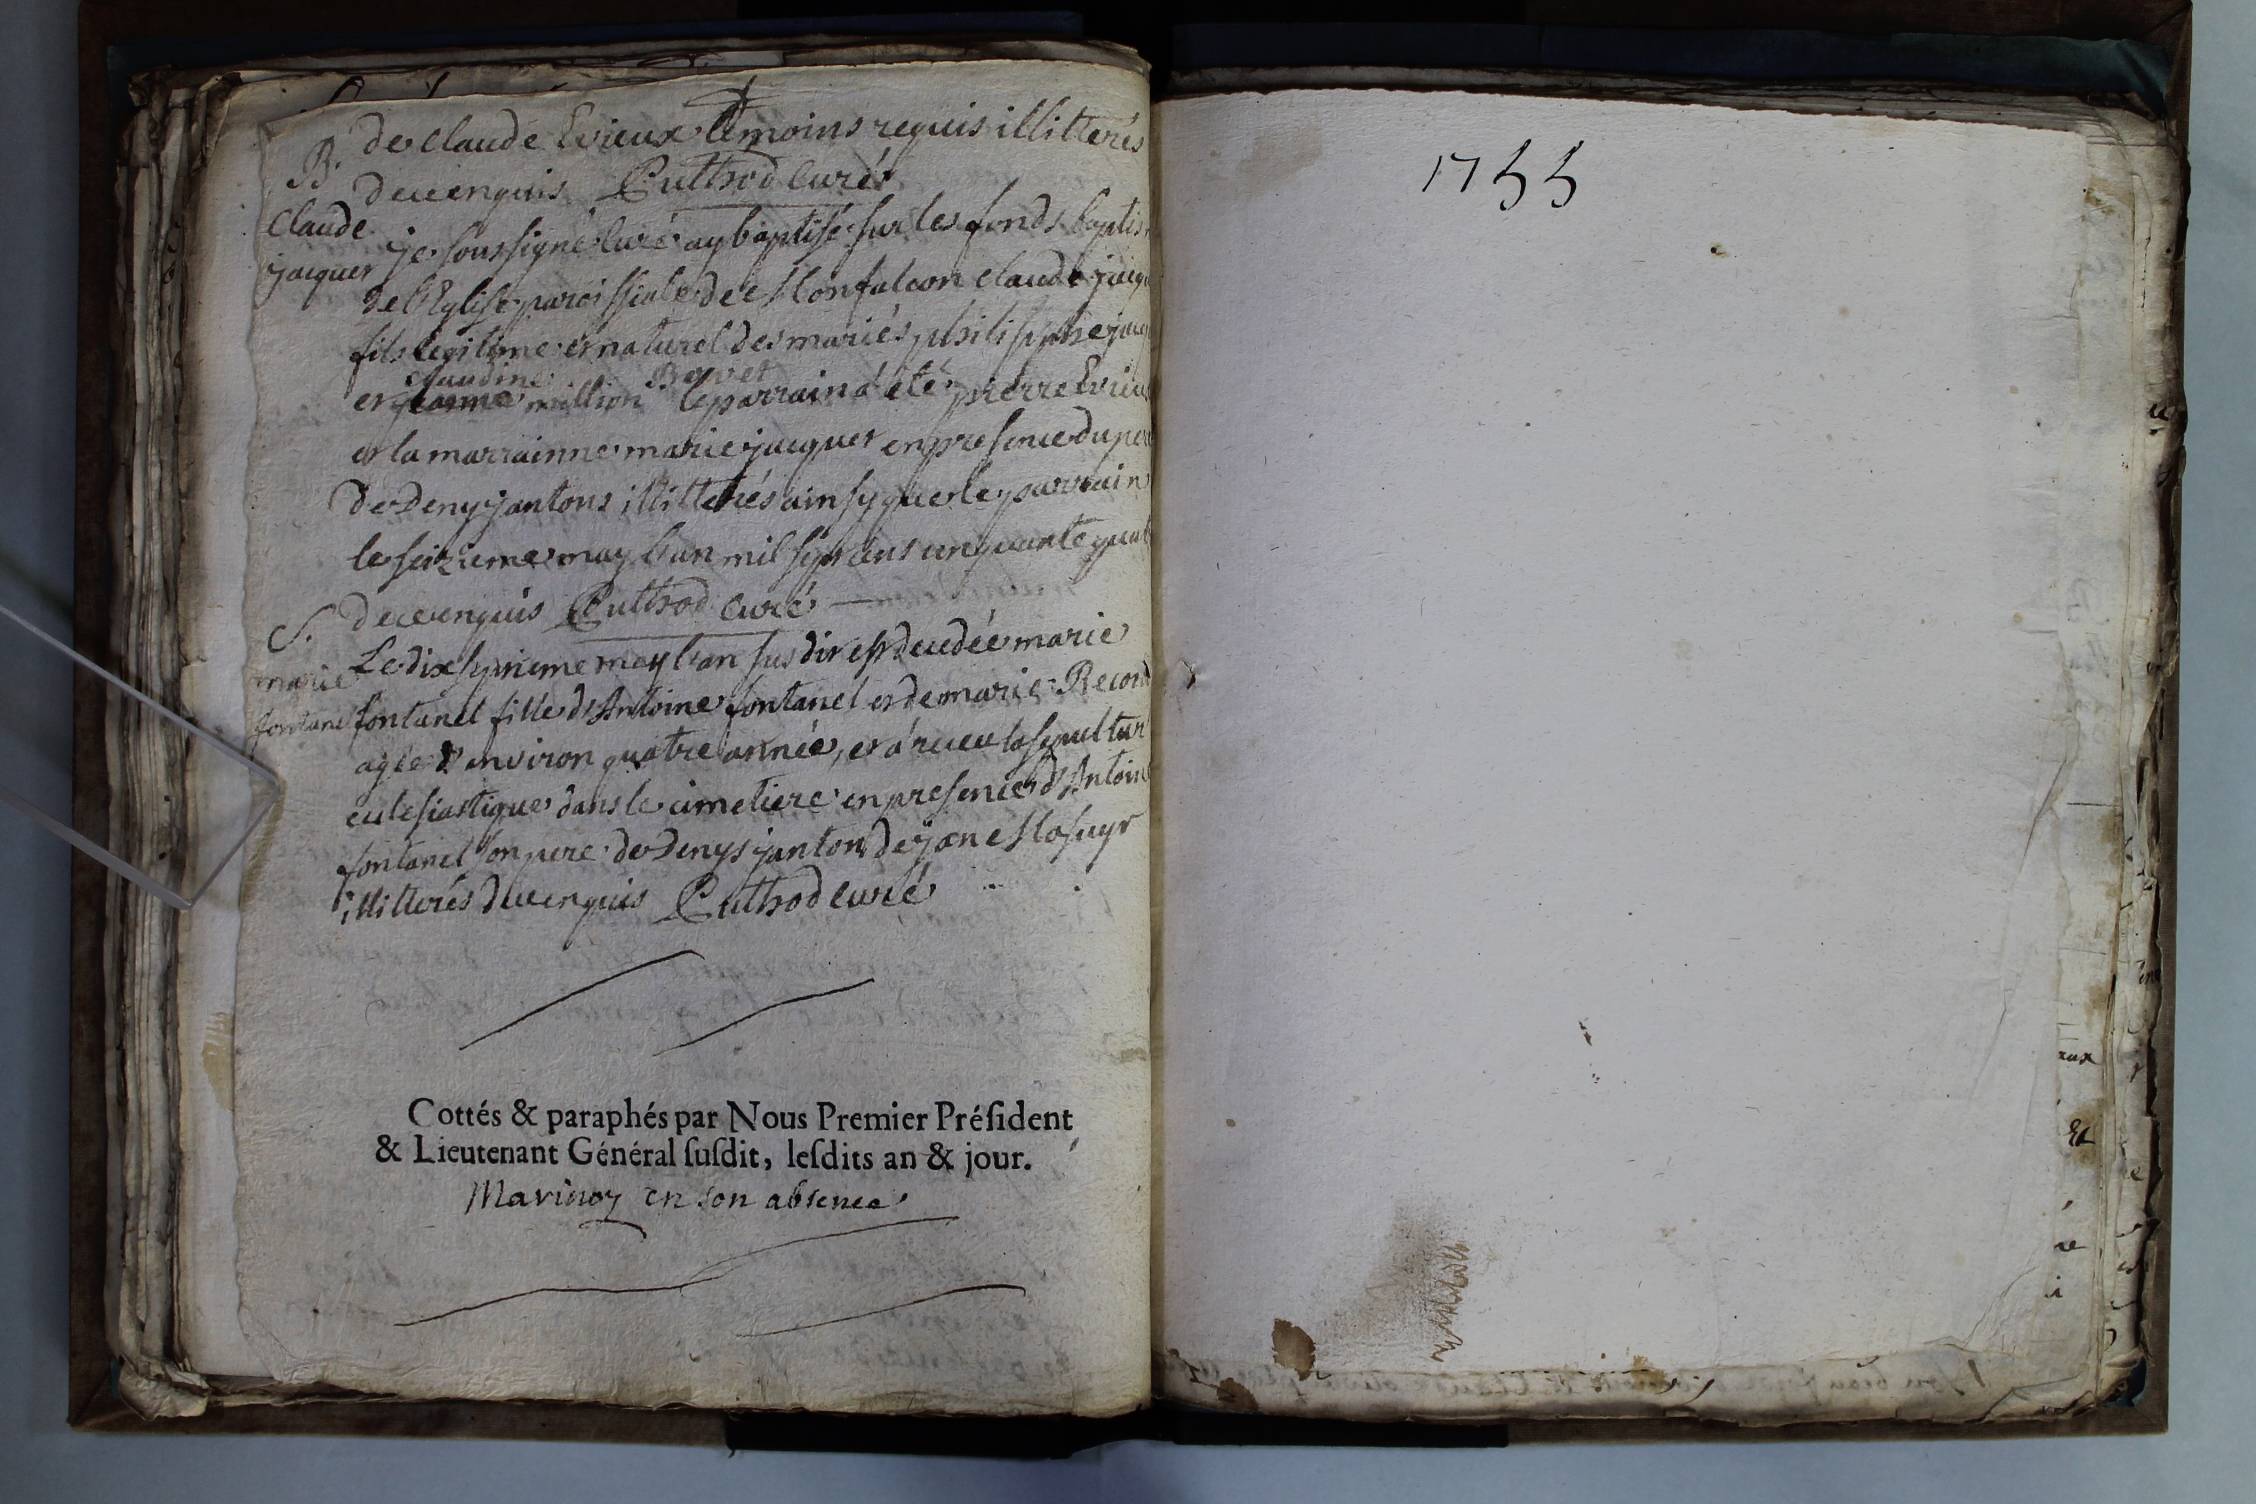 de Claude Evieux temoins requis illitterés
B. de ce enquis Puthod curé
Claude jacquet
je soussigné curé ay baptisé sur les fonds baptis
de l'Eglise paroissiale de Monfalcon Claude jacq
fils legitime et naturel des mariés philipphe jac
claudine Bovet
et jeanne million le parrain a été pierre Evieu
et la marrainne marie jacquet en presence du per
de Deny jantons illitterés ainsy que le parrain
le seizieme may l'an mil sept cens cinquante quat
de ce enquis Puthod curé
S. marie fontanel
Le dix septieme may l'an susdit est decedée marie
fontanel fille d'Antoine fontanel et de marie Record
agée d'environ quatre année, et a receu la sepultur
eclesiastique dans le cimetiere en presence d'Antoine
fontanel son pere de Denys janton de
illitterés de ce enquis Puthod curé
Cottés & paraphés par Nous Premier Préſident
& Lieutenant Général ſuſdit, leſdits an & jour.
en son absence
1755